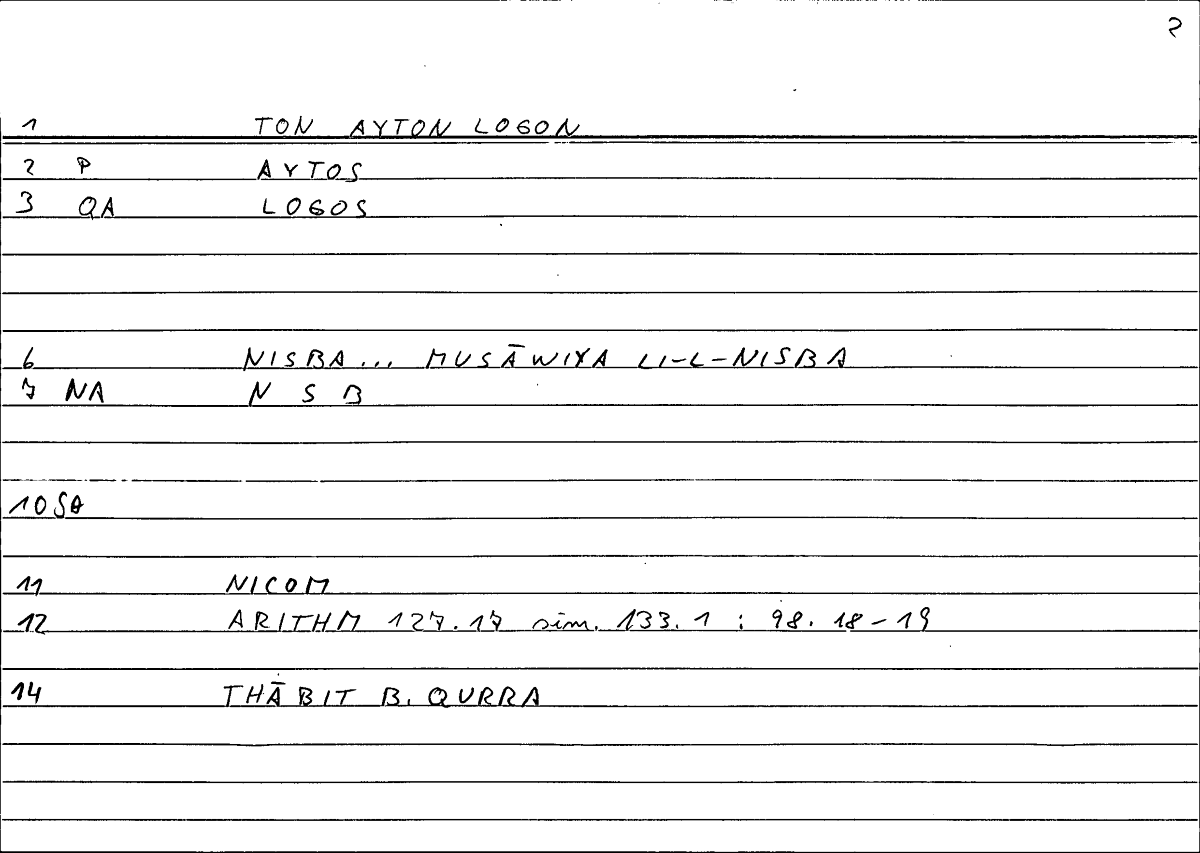 2
1 TON AYTON LOGON
2 P AYTOS
3 QA LOGOS
6 NISBA... MUSĀWIYA LI-L-NISBA
7 NA N S B
10 SA
11 NICOM
12 ARITHM 127.17 sim. 133.1 : 98.18-19
14 THĀBIT B. QURRA